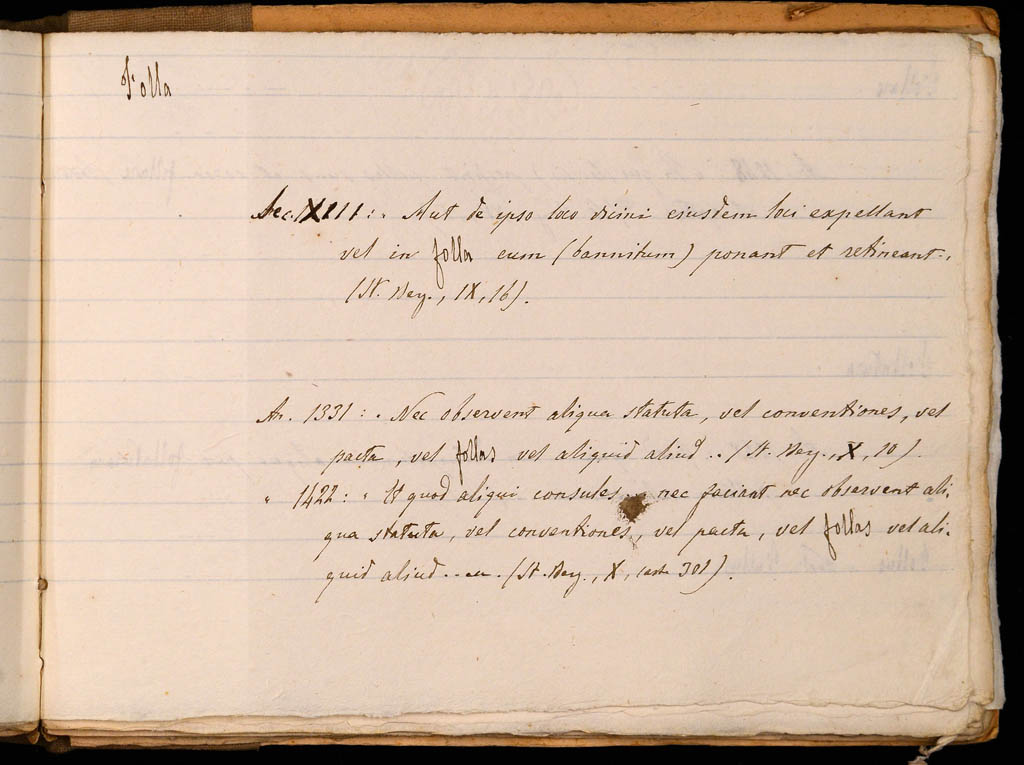 Folla
Sec. XIII: « Aut de ipso loco vicini eiusdem loci expellant
vel in folla eum (bannitum) ponant et retineant »,
(St. Berg., IX, 16).
An. 1331: « Nec observent aliqua statuta, vel conventiones, vel
pacta, vel follas vel aliquid aliud .. (St. Berg., X, 10).
" 1422: « Et quod aliqui consules .. nec faciant nec observent ali-
qua statuta, vel conventiones, vel pacta, vel follas vel ali-
quid aliud ... (St. Berg., X, 301).